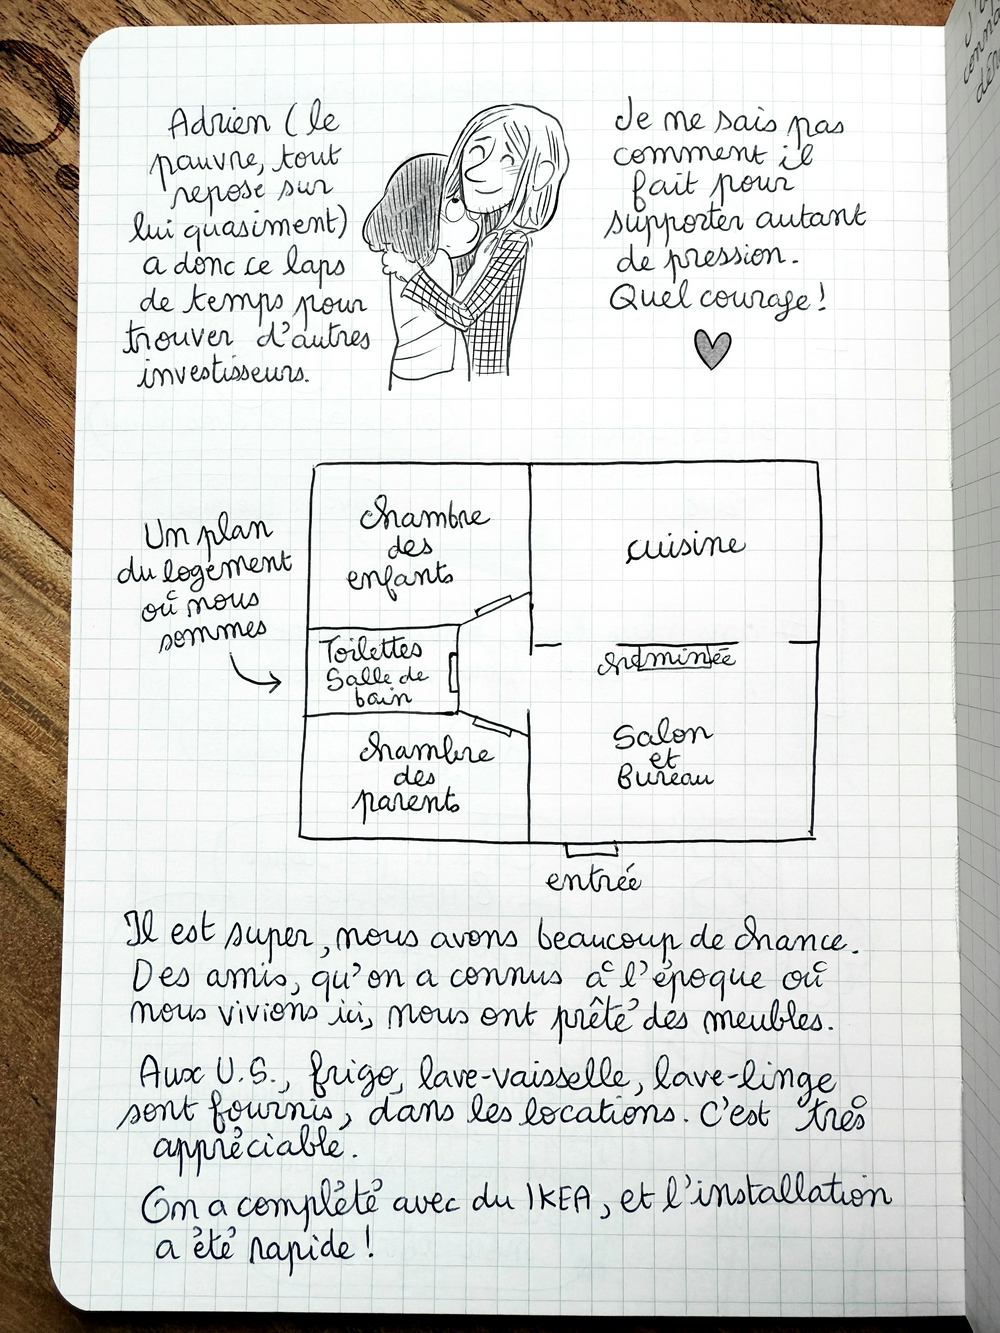 Adrien (le
pauvre, tout
repose sur
lui quasiment)
a donc ce laps
de temps pour
trouver d'autres
investisseurs.
Je ne sais pas
comment il
fait pour
supporter autant
de pression.
Quel courage !
Un plan
du logement
où nous
sommes
chambre
des
enfants
cuisine
Toilettes
Salle de
bain
cheminée
chambre
des
parents
Salon
et
Bureau
entrée
Il est super, nous avons beaucoup de chance.
Des amis, qu'on a connus à l'époque où
nous vivions ici, nous ont prêté des meubles.
Aux U.S., frigo, lave-vaisselle, lave-linge
sont fournis, dans les locations. C'est très
appréciable.
On a complété avec du IKEA, et l'installation
a été rapide !